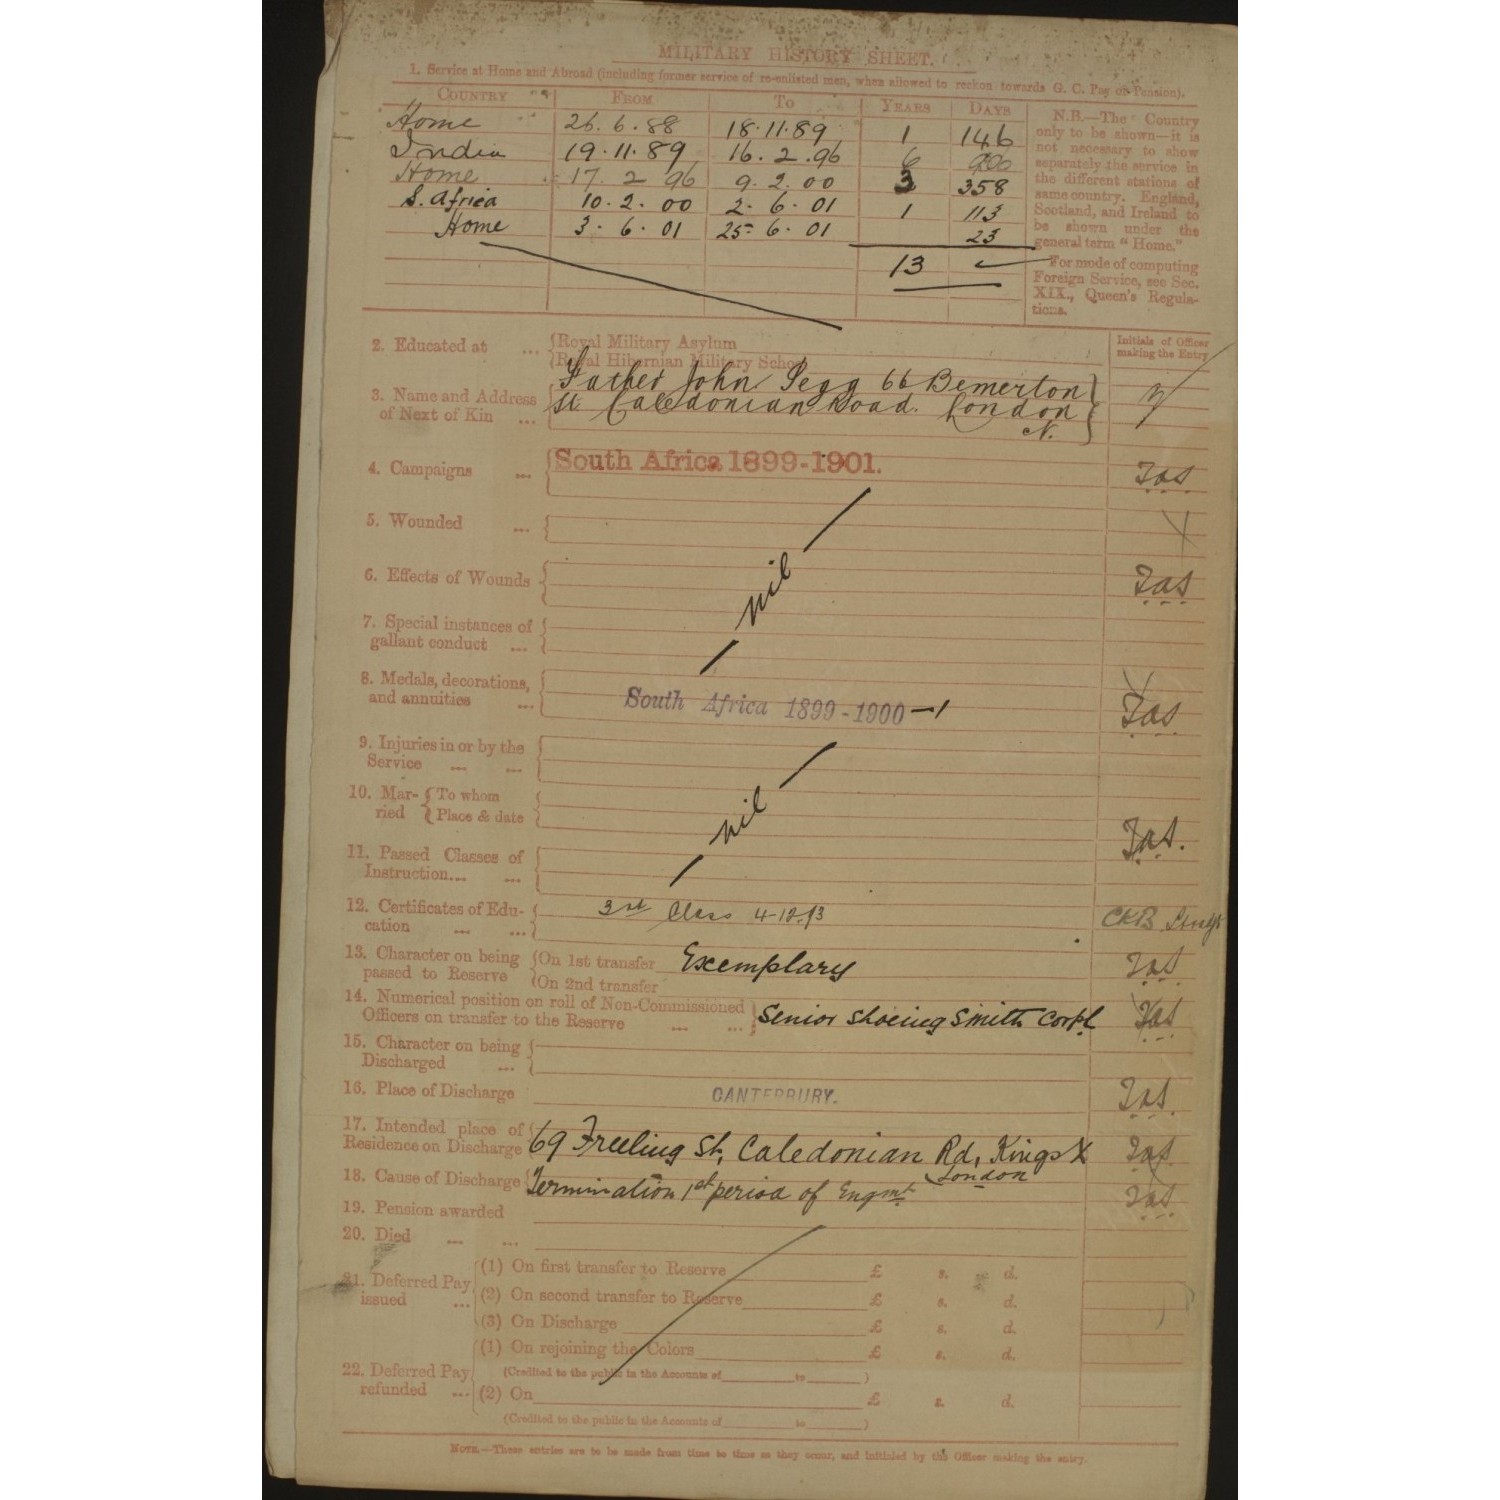 MILITARY HISTORY SHEET.
1. Service at Home and Abroad (including former service of re-enlisted men, when allowed to reckon towards G. C. Pay or Pension).
COUNTRY FROM TO YEARS DAYS
Home 26. 6. 88 18. 11. 89 1 146
India 19. 11. 89 16. 2. 96 6 90
Home 17. 2 96 9. 2. 00 3 358
S. Africa 10. 2. 00 2. 6. 01 1 113
Home 3. 6. 01 25 6. 01 23
13
N.B.—The Country
only to be shown—it is
not necessary to show
separately the service in
the different stations of
same country. England,
Scotland, and Ireland to
be shown under the
general term "Home."
For mode of computing
Foreign Service, see Sec.
XIX., Queen's Regula-
tions.
Initials of Officer
making the Entry
2. Educated at ... Royal Military Asylum
Royal Hibernian Military School
3. Name and Address
of Next of Kin ...
Father John Pegg 66 Bemerton
St Caledonian Road. London
N.
4. Campaigns ... South Africa 1899-1901.
5. Wounded ...
6. Effects of Wounds
nil
7. Special instances of
gallant conduct ...
8. Medals, decorations,
and annuities ...
South Africa 1899-1900-1
9. Injuries in or by the
Service ... ...
10. Mar-ried To whom
Place & date
nil
11. Passed Classes of
Instruction... ...
12. Certificates of Edu-
cation ... ...
3rd Class 4-12-93
13. Character on being
passed to Reserve
On 1st transfer Exemplary
On 2nd transfer
14. Numerical position on roll of Non-Commissioned
Officers on transfer to the Reserve ... ...
Senior Shoeing Smith Corpl
15. Character on being
Discharged ...
16. Place of Discharge CANTERBURY.
17. Intended place of
Residence on Discharge
69 Freeling St, Caledonian Rd, Kings X
London
18. Cause of Discharge Termination 1st period of Engmt
19. Pension awarded
20. Died ... ...
21. Deferred Pay
issued ...
(1) On first transfer to Reserve £ s. d.
(2) On second transfer to Reserve £ s. d.
(3) On Discharge £ s. d.
22. Deferred Pay
refunded ...
(1) On rejoining the Colors £ s. d.
(Credited to the public in the Accounts of to )
(2) On £ s. d.
(Credited to the public in the Accounts of to )
NOTE.—These entries are to be made from time to time as they occur, and initialed by the Officer making the entry.